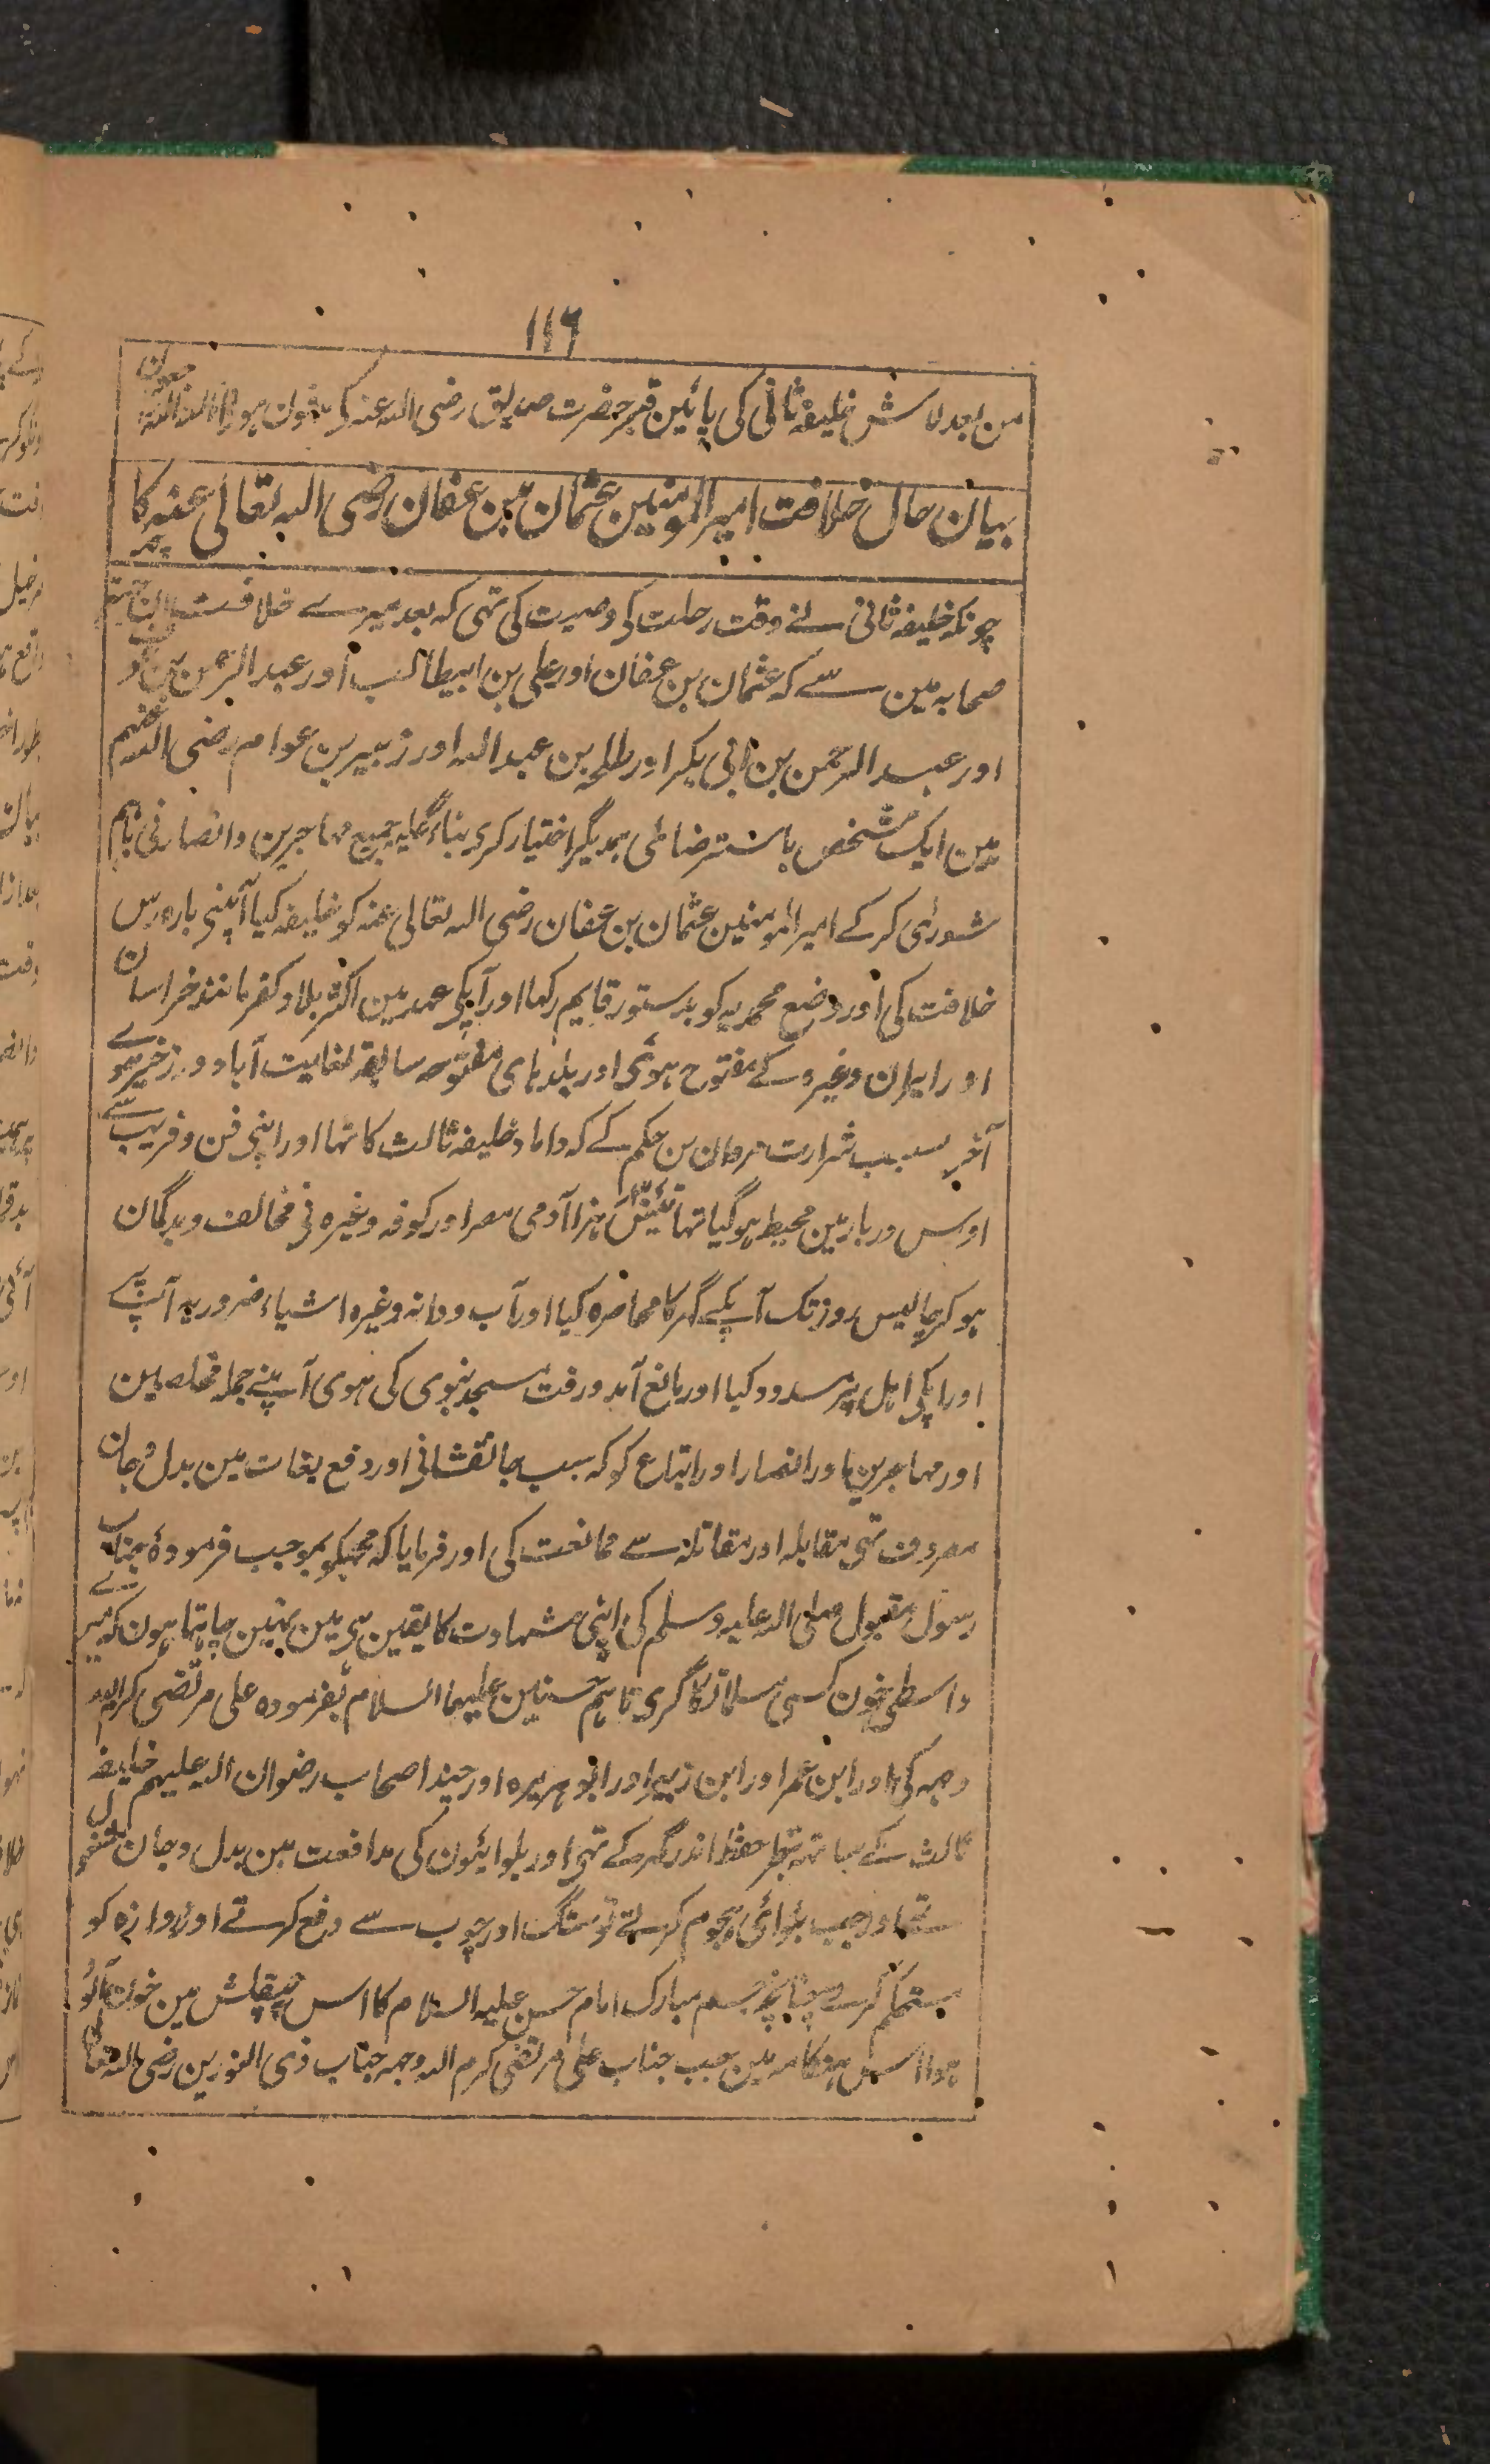 ١١٦
من بعد لاش خلیفہ ثانی کی پائین قبر حضرت صدیق رضی اللہ عنہ کی مدفون ہوئی
بیان حال خلافت امیر المومنین عثمان بن عفان رضی اللہ تعالی عنہ کا
چونکہ خلیفہ ثانی نے وقت رحلت کی وصیت کی تہی کہ بعد میرے خلافت
صحابہ مین سے کہ عثمان بن عفان اور علی بن ابیطالب اور عبد الرحمن بن
اور عبد الرحمن بن ابی بکر اور طلحہ بن عبد اللہ اور زبیر بن عوام رضی اللہ عنہم
مین ایک شخص باسترضائی ہمدیگر اختیار کری بناءً علیہ جمیع مہاجرین و انصار نی باہم
شورٰی کر کے امیر المومنین عثمان بن عفان رضی اللہ تعالی عنہ کو خلیفہ کیا آپنی بارہ برس
خلافت کی اور وضع محمدیہ کو بدستور قایم رکہا اور آپکی عہد مین اکثر بلاد کفر مانند خراسان
اور ایران وغیرہ کے مفتوح ہوئی اور بلدہای مفتوحہ سابقہ بغایت آباد و زرخیز ہوے
آخر بسبب شرارت مروان بن حکم کے کہ داماد خلیفہ ثالث کا تہا اور اپنی فن و فریب سے
اوس دربار مین محیط ہو گیا تہا ہزار آدمی مصر اور کوفہ وغیرہ نی مخالف و بدگمان
ہو کر چالیس روز تک آپکے گہر کا محاصرہ کیا اور آب و دانہ وغیرہ اشیاء ضروریہ آپ پر
اور آپکی اہل پر مسدود کیا اور مانع آمد و رفت مسجد نبوی کی ہوی آپنے جملہ مخلصین
اور مہاجرین اور انصار اور اتباع کو کہ سبب جانفشانی اور دفع بغات مین بدل و جان
مصروف تہی مقابلہ اور مقاتلہ سے ممانعت کی اور فرمایا کہ مجہکو بموجب فرمودۂ جناب
رسول مقبول صلی اللہ علیہ وسلم کی اپنی شہادت کا یقین ہی مین نہین چاہتا ہون کہ میرے
واسطی خون کسی مسلمان کا گری تاہم حسنین علیہما السلام بفرمودہ علی مرتضی کرم اللہ
وجہہ کی اور ابن عمر اور ابن زبیر اور ابو ہریرہ اور چند اصحاب رضوان اللہ علیہم خلیفہ
ثالث کے ساتہ بنظر حفظ اندر گہر کے تہی اور بلوائیون کی مدافعت مین بدل و جان مشغول
تہے اور جب بلوائی ہجوم کرتے تو سنگ اور چوب سے دفع کرتے اور دروازہ کو
مستحکم کرتے چنانچہ جسم مبارک امام حسن علیہ السلام کا اس چپقلش مین خون آلودہ
ہوا اس ہنگامہ مین جب جناب علی مرتضی کرم اللہ وجہہ جناب ذی النورین رضی اللہ تعالی